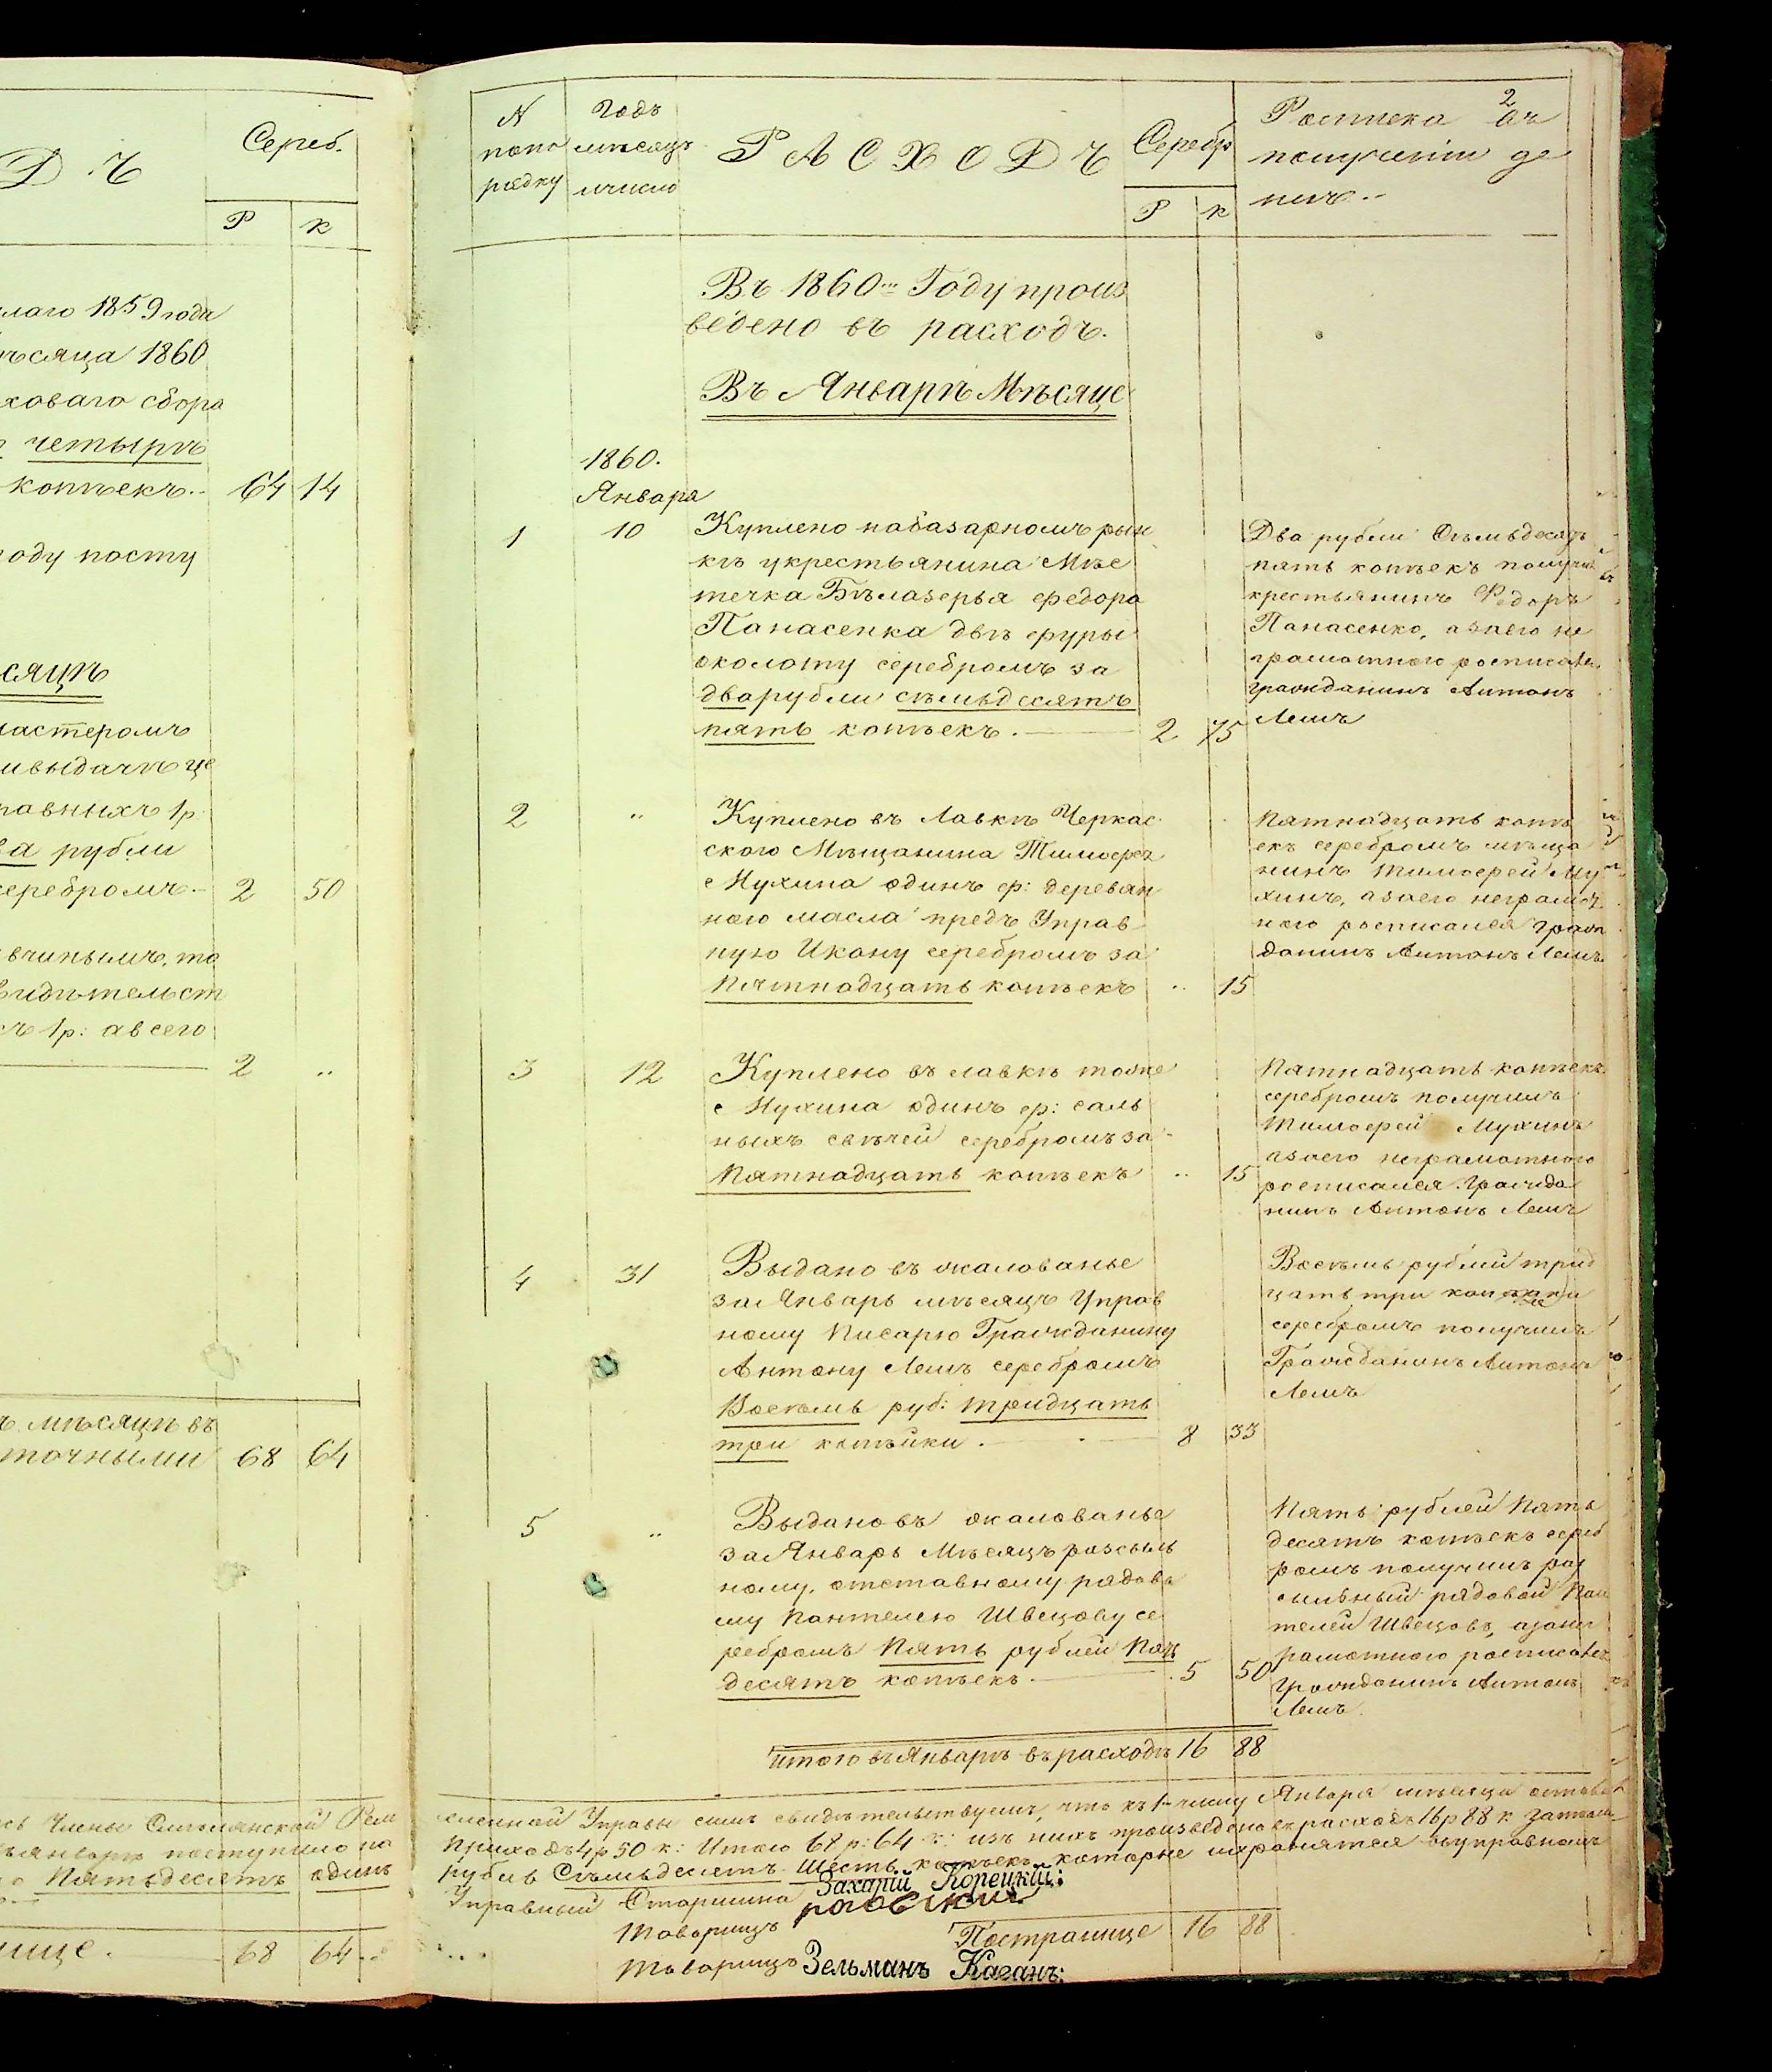 Д Ъ
Сереб.
Р к
лаго 1859 года
мѣсяца 1860
ховаго сбора
четырѣ
копѣекъ.. 64 14
году посту
сяцѣ
мастеромъ
ивыдачѣ це
равныхъ 1р.
ва рубли
серебромъ.- 2 50
вчинымъ, та
видительст
съ 1р: авсего
2 ..
ъ мѣсяцѣ въ
точными 68 64
Члены Смѣлянской Рем
Январѣ поступило по
Пятьдесятъ одинъ
нице. 68 64..
2
N попо рядку
Годъ мѣсяцъ ичисло
РАСХОДЪ
Серебр
Р к
Росписка въ
полученіи де
негъ.-
Въ 1860м Году произ
ведено въ расходъ.
Въ Январѣ Мѣсяце
1860.
Января
1 10
Куплено набазарномъ рын
кѣ укрестьянина Мѣс
течка Бѣлазерья Федора
Панасенка двѣ фуры
околоту серебромъ за
дварубли сѣмьдесятъ
пять копѣекъ. 2 75
Два рубли Сѣмьдесятъ
пять копѣекъ получилъ
крестьянинъ Федоръ
Панасенко, азаего не
грамотного росписался
гражданинъ Антонъ
Лемъ
2 ..
Куплено въ Лавкѣ Черкас
ского Мѣщанина Тимофея
Мухина одинъ ф: деревян
ного масла предъ Управ
ную Икону серебромъ за
Пятнадцать копѣекъ .. 15
Пятнадцать копѣ
екъ серебромъ мѣща
нинъ Тимофей Му
хинъ, азаего неграмот
ного росписался граж
данинъ Антонъ Лемъ
3 12
Куплено въ лавкѣ тоже
Мухина одинъ ф: саль
ныхъ свѣчей серебромъ за
Пятнадцать копѣекъ .. 15
Пятнадцать копѣекъ
серебромъ получилъ
Тимофей Мухинъ
азаего неграмотного
росписался Гражда
нинъ Антонъ Лемъ
4 31
Выдано въ жалованье
за Январь мѣсяцъ Управ
ному Писарю Гражданину
Антону Лемъ серебромъ
Восѣмь руб: тридцать
три копѣйки. 8 33
Восѣмь рублей трид
цать три
серебромъ получилъ
Гражданинъ Антонъ
Лемъ
5 ..
Выдановъ жалованье
за Январь Мѣсяцъ розсыль
ному, отставному рядово
му Пантелею Швецову се
ребромъ Пять рублей Пять
десятъ копѣекъ. 5 50
Пять рублей Пять
десятъ копѣекъ сереб
ромъ получилъ роз
сыльный рядовой Пан
телей Швецовъ, азанег
рамотного росписался
Гражданинъ Антонъ
Лемъ.
Итого въ Январѣ врасходѣ 16 88
сленной Управы симъ свидѣтельствуемъ, что къ 1-числу Января мѣсяца
Приходъ 4р 50 к: Итого 68 р: 64 к: изъ нихъ произведено въ расходъ 16р 88 к затѣм
рубль Сѣмьдесятъ Шесть копѣекъ, которые ихранятся вуправномъ
Управный Старшина Захарій Корецкій:
Товарищъ
Пострaнице 16 88
Товарищъ Зельманъ Каганъ: